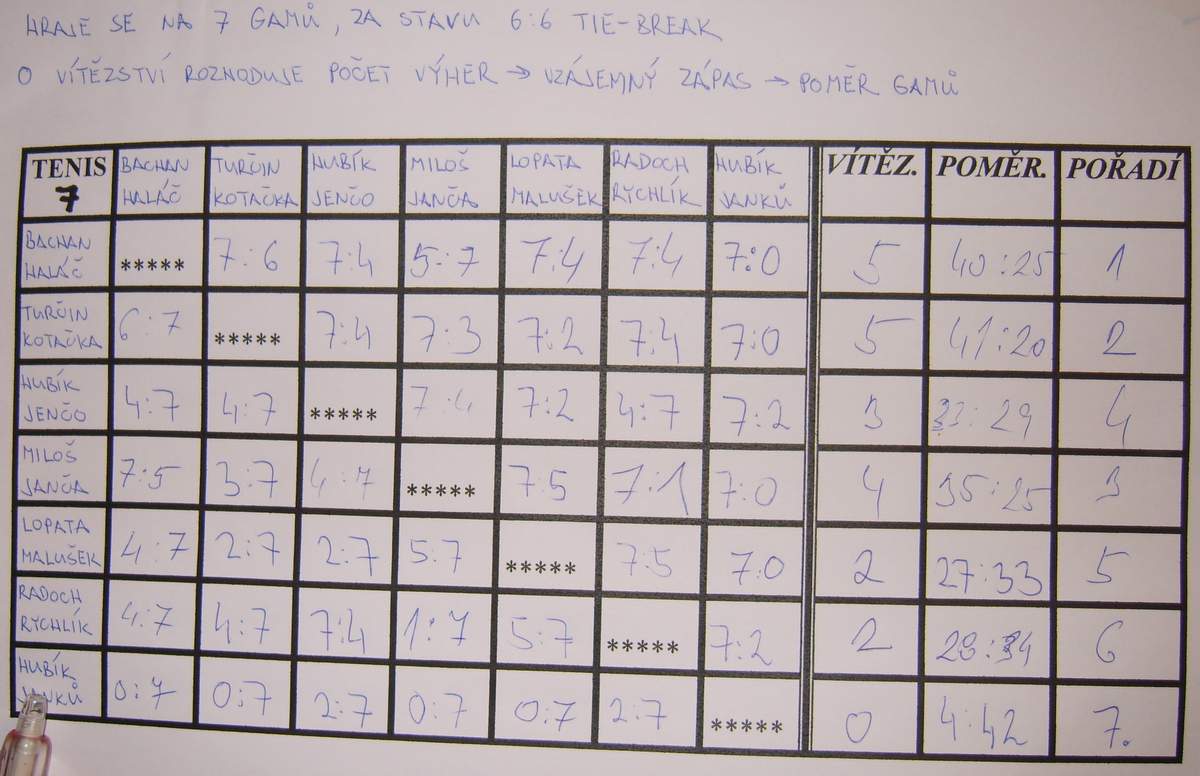 HRAJE SE NA 7 GAMŮ, ZA STAVU 6:6 TIE-BREAK
O VÍTĚZSTVÍ ROZHODUJE POČET VÝHER → VZÁJEMNÝ ZÁPAS → POMĚR GAMŮ
TENIS 7 BACHAN HALÁČ TURČIN KOTAČKA HUBÍK JENČO MILOŠ JANČA LOPATA MALUŠEK RADOCH RYCHLÍK HUBÍK JANKŮ VÍTĚZ. POMĚR. POŘADÍ
BACHAN HALÁČ ***** 7:6 7:4 5:7 7:4 7:4 7:0 5 40:25 1
TURČIN KOTAČKA 6:7 ***** 7:4 7:3 7:2 7:4 7:0 5 41:20 2
HUBÍK JENČO 4:7 4:7 ***** 7:4 7:2 4:7 7:2 3 33:29 4
MILOŠ JANČA 7:5 3:7 4:7 ***** 7:5 7:1 7:0 4 35:25 3
LOPATA MALUŠEK 4:7 2:7 2:7 5:7 ***** 7:5 7:0 2 27:33 5
RADOCH RYCHLÍK 4:7 4:7 7:4 1:7 5:7 ***** 7:2 2 28:34 6
HUBÍK JANKŮ 0:7 0:7 2:7 0:7 0:7 2:7 ***** 0 4:42 7.